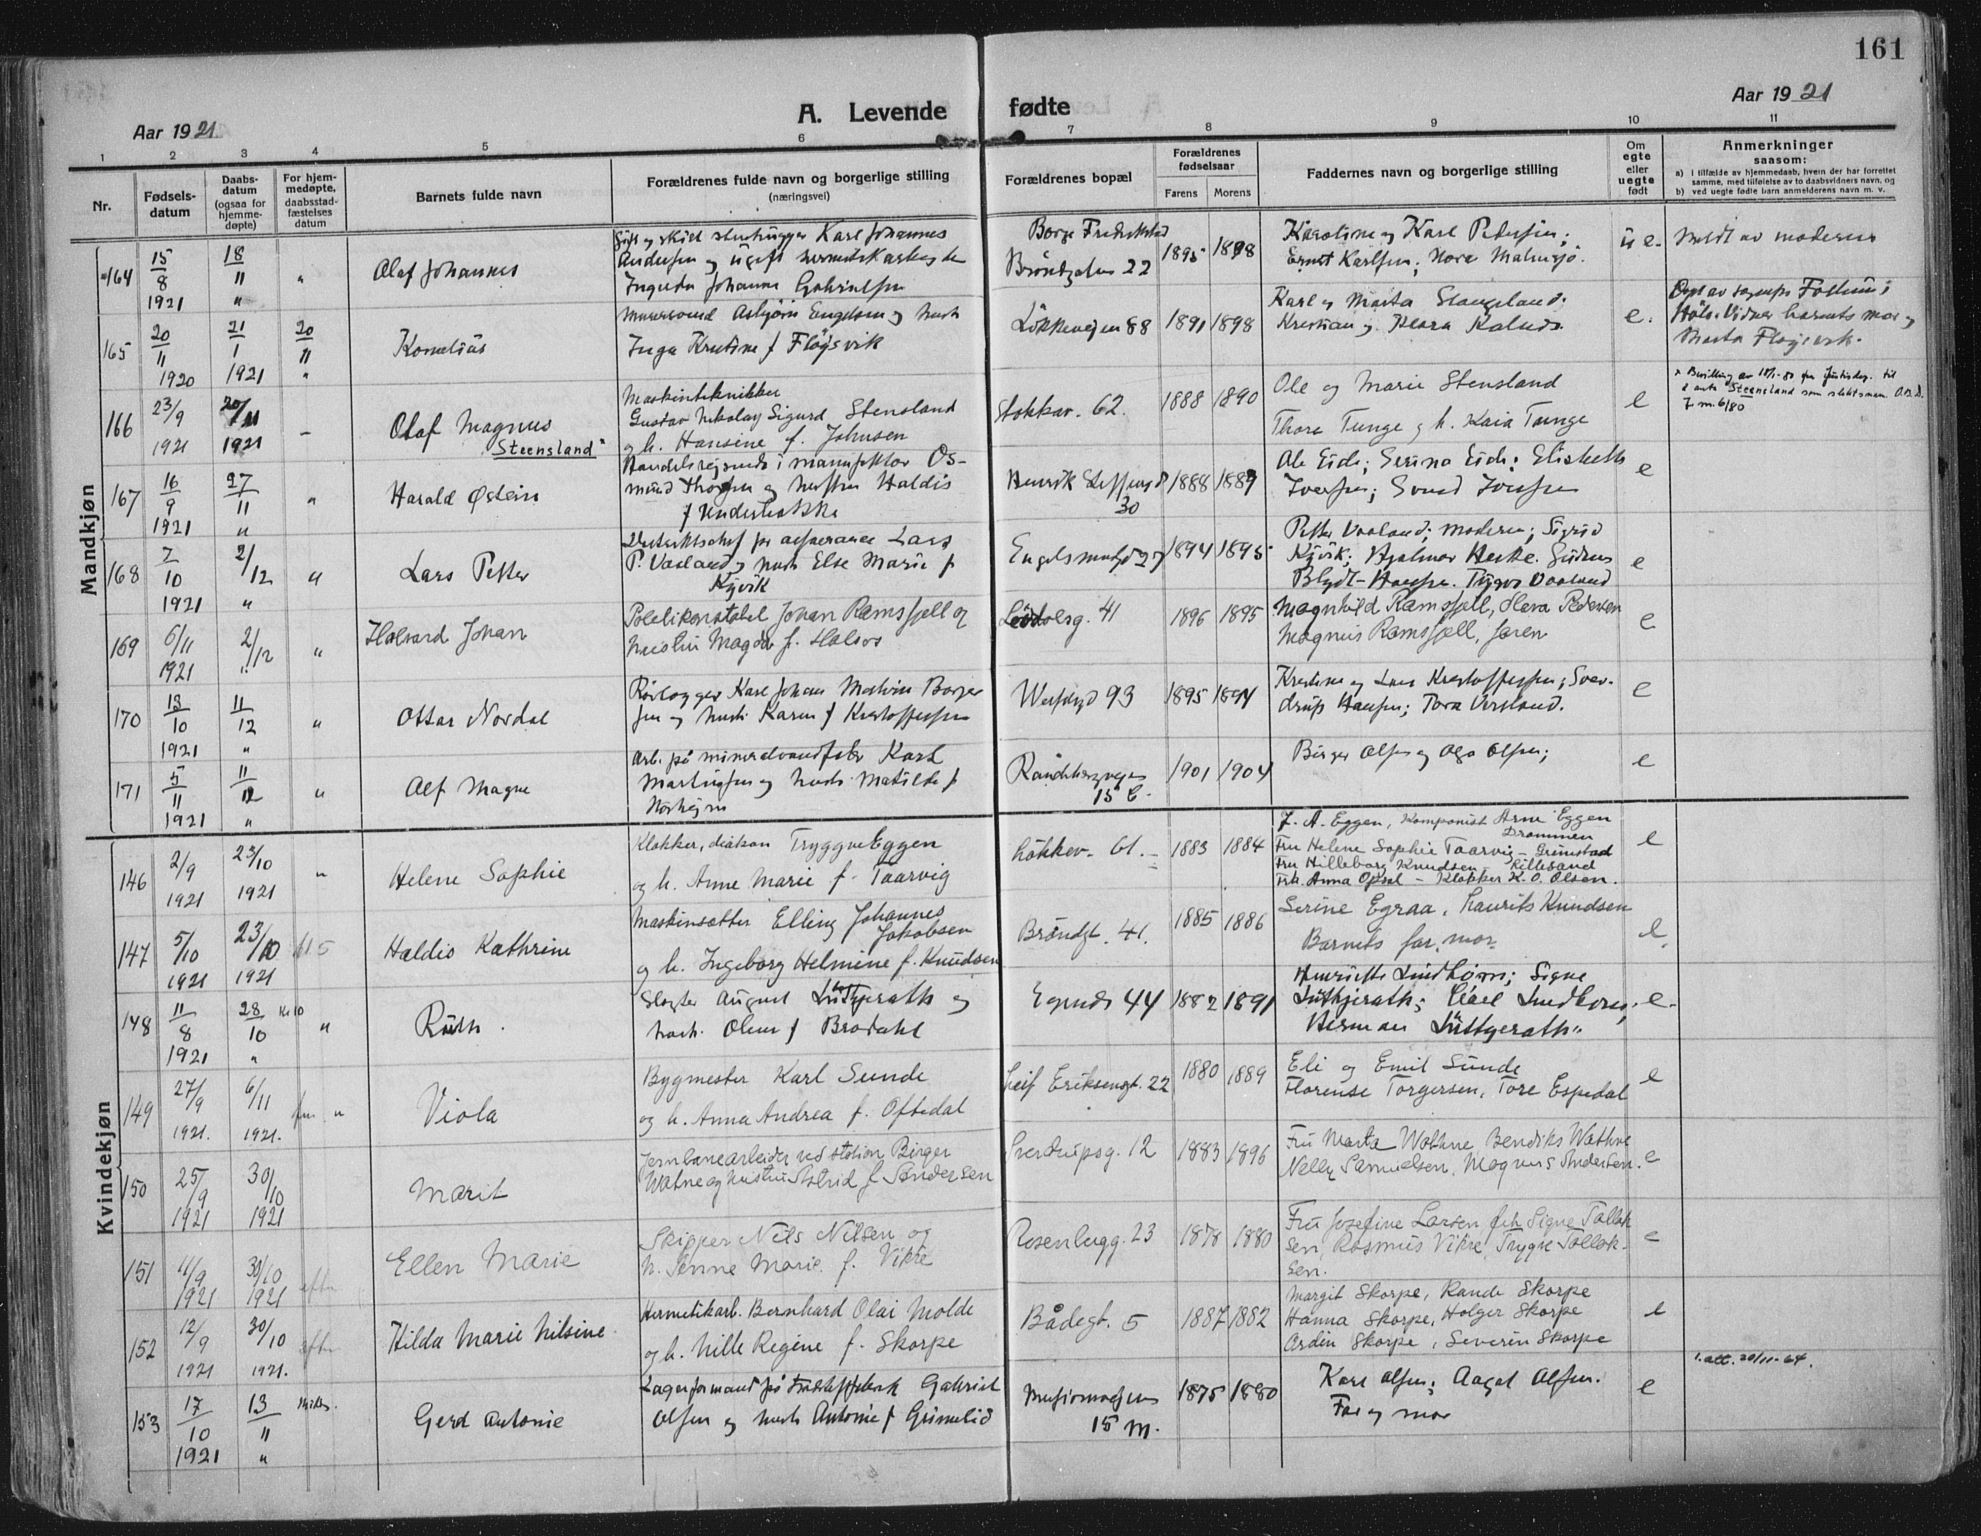 161
A. Levende fødte
Aar 1921
Aar 1921
1 2 3 4 5 6 7 8 9 10 11
Nr.
Fødsels-
datum
Daabs-
datum
(ogsaa for
hjemme-
døpte)
For hjem-
medøpte,
daabsstad-
fæstelses
datum
Barnets fulde navn
Forældrenes fulde navn og borgerlige stilling
(næringsvei)
Forældrenes bopæl
Forældrenes
fødselsaar
Farens Morens
Faddernes navn og borgerlige stilling
Om
egte
eller
uegte
født
Anmerkninger
saasom:
a) i tilfælde av hjemmedaab, hvem der har forrettet
samme, med tilføielse av to daabsvidners navn, og
b) ved uegte fødte barn anmelderens navn m. v.
Mandkjøn
164 15/8 1921 18/11 " " Olaf Johannes
Karl Johannes
Andersen og ugift
Johanne
Borge Fredrikstad
22
1895 1898
Karoline og Karl Pedersen;
Ernst Karlsen; Nora
u e. Meldt av moderen
165 20/11 1920 21/1 1921 20/11 " Kornelius
Murersvend Asbjørn Engelsen og hustr
Inga Kristine f Fløysvik
Løkkevejen 88 1891 1898
Karl og Marta Stangeland.
Kristian og Klara
e.
Vidner barnets mor og
Marta Fløysvik.
166 23/9 1921 20/11 1921 – Olaf Magnus
Steensland"
Maskintekniker
Gustav Nikolay Sigurd Stensland
og h. Hansine f. Johnsen
Stokkav. 62. 1888 1890
Ole og Marie Stensland
Thora Tunge og h. Kaia Tunge
e
" Bevilling av
Steensland som slektsnavn
167 16/9 1921 27/11 " " Harald Østein
Handelsreisende i manufaktur Os-
mund og hustru Haldis
f
Henrik Steffensg
30
1888 1889
Ole Eide; Serina Eide; Elisabeth
Iversen; Svend Iversen
e
168 7/10 1921 2/12 " " Lars Petter
Lars
P. Vaaland og hustr Else Marie f
Kjvik
Engelsmindg 27 1894 1895
Petter Vaaland; moderen; Sigrid
Kjvik; Hjalmar Herke.
Blydt-Hansen. Vaaland
e
169 6/11 1921 2/12 " " Halvard Johan
Politikonstabel Johan Ramsfjell og
hustru Magda f. Halsos
41 1896 1895
Magnhild Ramsfjell, Pedersen
Magnus Ramsfjell, faren
e
170 13/10 1921 11/12 " " Ottar Nordal
Rørlægger Karl Johan Malvin Borger
sen og hustr. Karen f Kristoffersen
93 1895 1894
Kristine og Lars Kristoffersen; Sver-
drup Hansen; Tora
e
171 5/11 1921 11/12 " " Alf Magne
Arb. på mineralvandfabr Karl
Martinsen og hustr. Matilde f
Randabergvejen
15 C.
1901 1904
Birger Olsen og Olga Olsen;
e
Kvindekjøn
146 2/9 1921 23/10 1921 " Helene Sophie
Klokker, diakon Tryggve Eggen
og h. Anne Marie f. Taarvig
Løkkev. 61. 1883 1884
J. A. Eggen, Komponist Arne Eggen
Drammen
Fru Helene Sophie Taarvig – Grimstad
Fru Hilleborg Knudsen Lillesand
Frk. Anna Opsal – Klokker K. O. Olsen.
e
147 5/10 1921 23/10 1921 Haldis Kathrine
Maskinsætter Elling Johannes
Jakobsen
og h. Ingeborg Helmine f. Knudsen
Brøndgt. 41. 1885 1886
Serine Egraa, Laurits Knudsen
Barnets far, mor
e
148 11/8 1921 28/10 " " Ruth.
August Lüttgerath og
hustr. f Brodahl
44 1882 1891
Henriette Lindhorn; Signe
Lüthjerath;
Herman Lüttgerath"
e.
149 27/9 1921. 6/11 1921. " Viola
Bygmester Karl Sunde
og h. Anna Andrea f. Oftedal
Leif Eriksensgt. 22 1880 1889
Eli og Emil Sunde
Florense Torgersen, Tore Espedal
e
150 25/9 1921 30/10 1921 Marit
Jernbanearbeider ved station Birger
Watne og hustru Astrid f. Andersen
Sverdrupsg. 12 1883 1896
Fru Marta Wathne Bendiks Wathne
Nelly Samuelsen, Magnus Andersen.
e
151 11/9 1921 30/10 1921 Ellen Marie
Skipper Nils Nilsen og
h. Jenne Marie f. Vikre
Rosenbergg. 23 1878 1880
Fru Josefine Larsen frk Signe Tollak
sen, Rasmus Vikre, Trygve Tollak-
sen.
e
152 12/9 1921 30/10 1921. Hilda Marie Nilsine
Hermetikarb. Bernhard Olai Molde
og h. Nille Regine f. Skorpe
Bådegt. 5 1887 1882
Margit Skorpe, Rande Skorpe
Hanna Skorpe, Holger Skorpe
Ordin Skorpe, Severin Skorpe
e
153 17/10 1921 13/11 " Gerd Antonie
Lagerformand på Gabriel
Olsen og hustr Antonie f Grimelid
Misjonsvejen
15 M.
1875 1880
Karl Olsen; Aagot Olsen.
Far og mor
e
1. att. 20/11-64.